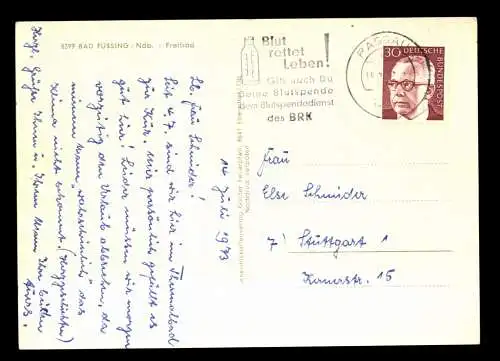 8399 BAD FÜSSING · Ndb. · Freibad
Blut
rettet
Leben!
Gib auch Du
Deine Blutspende
dem Blutspendedienst
des BRK
PASSAU
30 DEUTSCHE
BUNDESPOST
14 Juli 1973
Lb. Frau Schneider!
Seit 4.7. sind wir hier im Thermalbad
zur Kur. Mir persönlich gefällt es
gut hier! Leider müssen wir morgen
vorzeitig den Urlaub abbrechen, da
meinem Mann "wahrscheinlich" das
Klima nicht bekommt.
Herzl. Grüße Ihnen u. Ihrem Mann von beiden
Frau
Else Schneider
7 Stuttgart 1
15